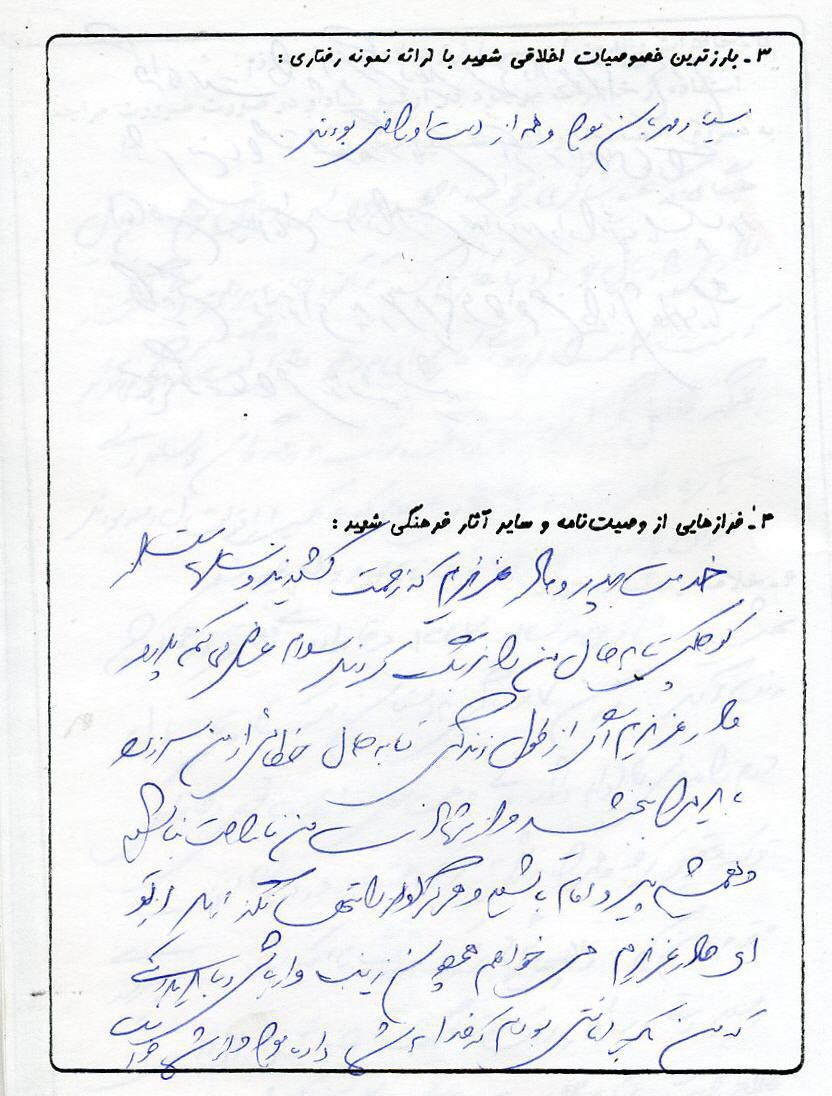 ۳ـ بارزترین خصوصیات اخلاقی شهید با ارائه نمونه رفتاری :
بسیار مهربان بود و همه از دست او راضی بودند
۴ـ فرازهایی از وصیت‌نامه و سایر آثار فرهنگی شهید :
خدمت پدر و مادر عزیزم که زحمت کشیدند و
کودکی تا به حال من را بزرگ کردند سلام عرض می کنم پدر و
مادر عزیزم اگر از طول زندگی تا به حال خطائی از من سر زده
باید مرا ببخشید و از شهادت من ناراحت نباشید
و همیشه پیرو امام باشید و هرگز او را تنها نگذارید
ای مادر عزیزم می خواهم همچون زینب وار باشی و
که من امانتی بودم که خدا به شما داده بود و از شما